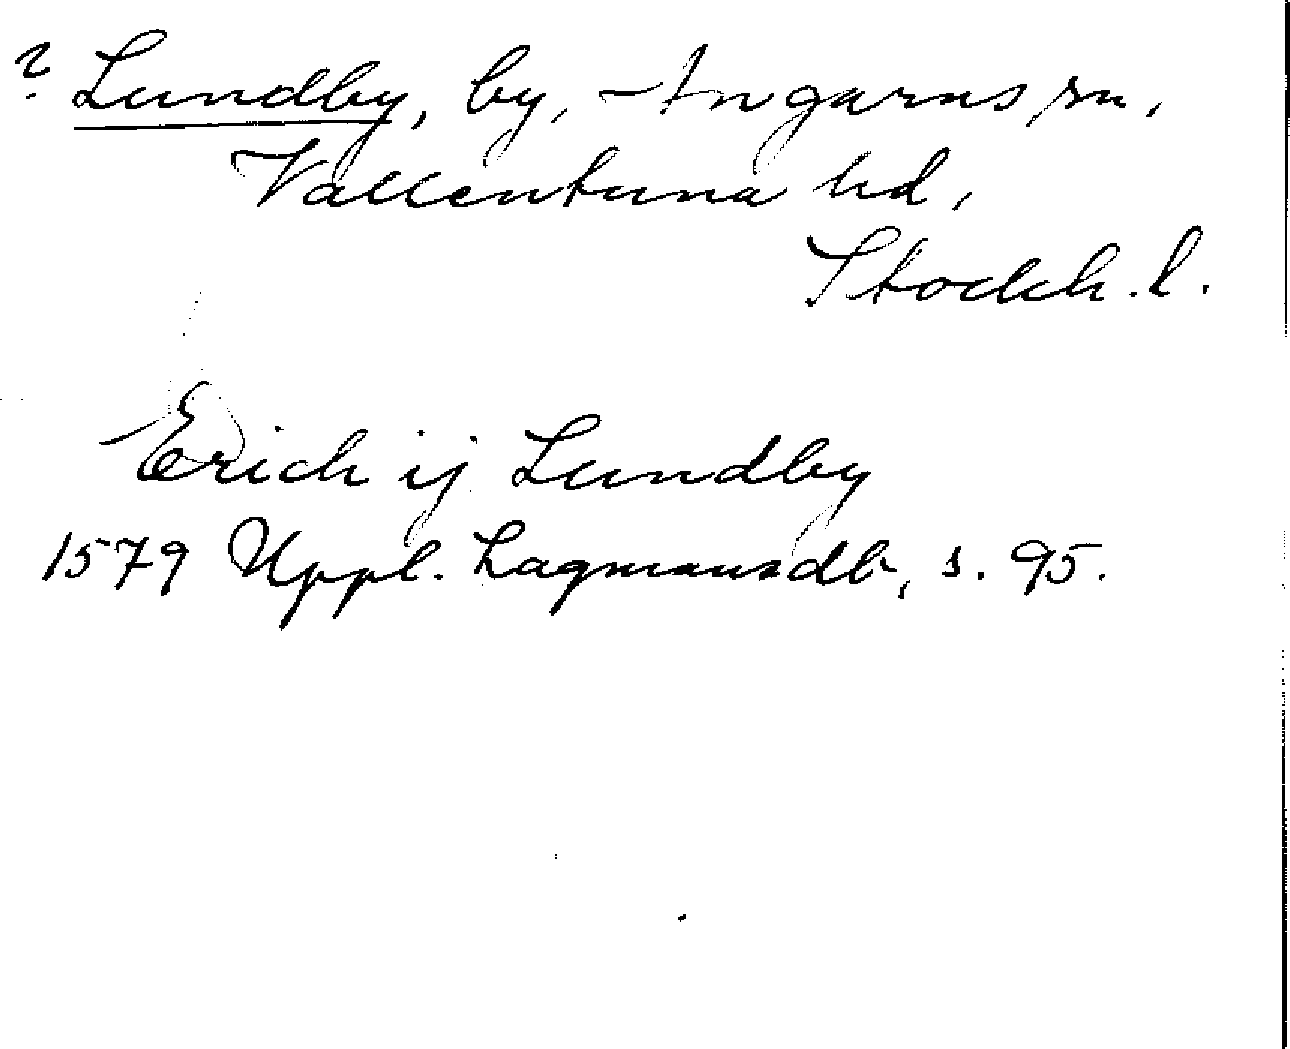 ? Lundby, by, Angarns sn,
Vallentuna hd,
Stockh. l.
Erich ij Lundby
1579 Uppl. Lagmansdb, s. 95.